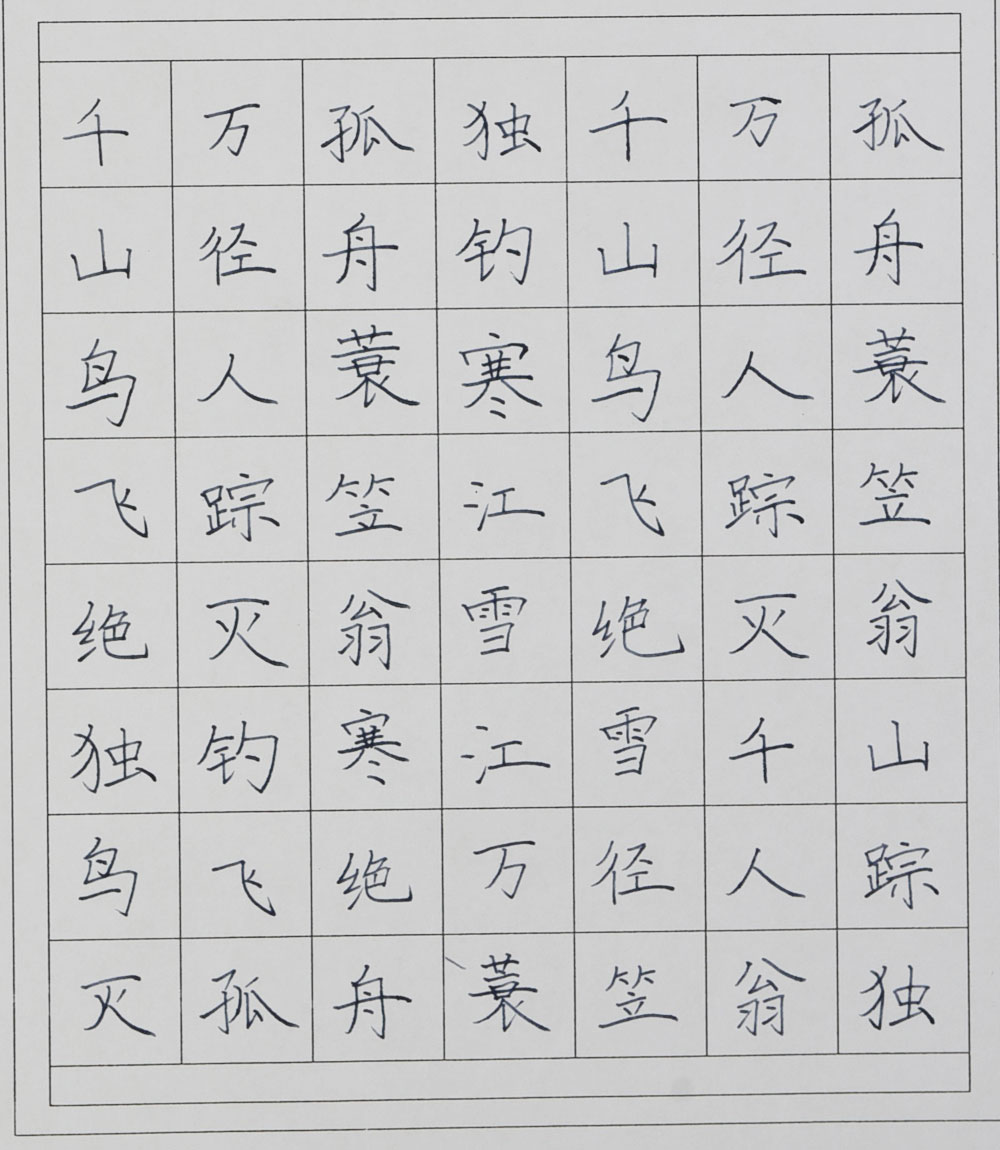 千万孤独千万孤
山径舟钓山径舟
鸟人蓑寒鸟人蓑
飞踪笠江飞踪笠
绝灭翁雪绝灭翁
独钓寒江雪千山
鸟飞绝万径人踪
灭孤舟蓑笠翁独